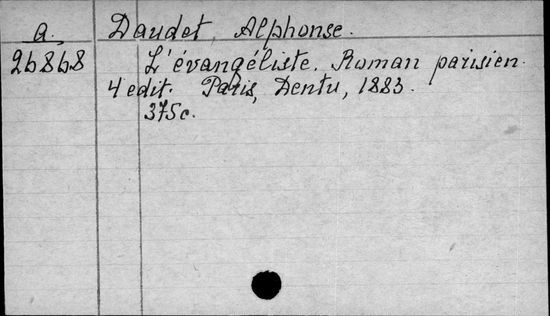 a. Daudet, Alphonse.
26868 L'évangéliste. Roman parisien.
4 edit. Paris, Dentu, 1883.
375c.